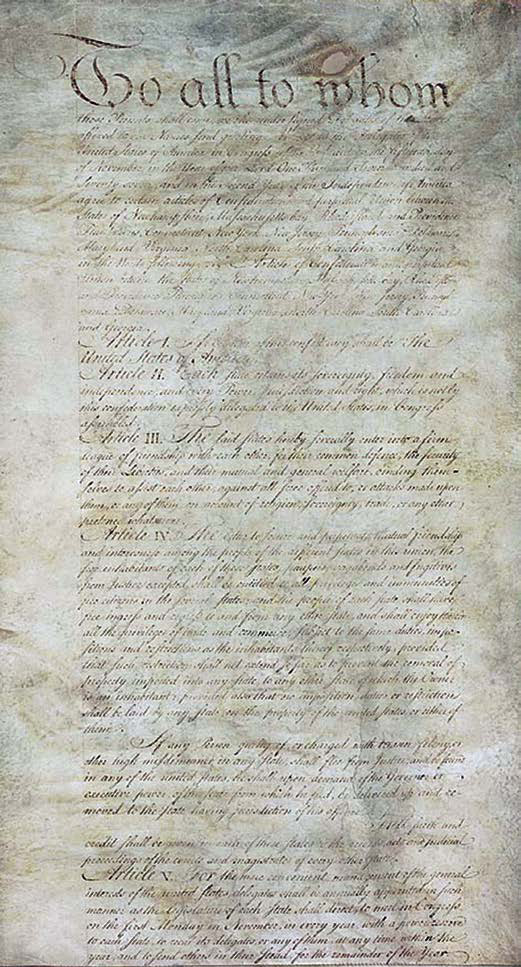 To all to whom
these Presents shall come, we the under signed Delegates of the States
affixed to our Names send greeting. Whereas the Delegates of the
United States of America in Congress assembled did on the fifteenth day
of November in the Year of our Lord One Thousand Seven Hundred and
Seventy seven, and in the Second Year of the Independence of America
agree to certain articles of Confederation and perpetual Union between the
States of Newhampshire, Massachusetts-bay, Rhodeisland and Providence
Plantations, Connecticut, New York, New Jersey, Pennsylvania, Delaware,
Maryland, Virginia, North-Carolina, South-Carolina and Georgia
in the Words following, viz. Articles of Confederation and perpetual
Union between the States of Newhampshire, Massachusetts-bay, Rhodeisland
and Providence Plantations, Connecticut, New-York, New-Jersey, Pennsyl-
vania, Delaware, Maryland, Virginia, North-Carolina, South-Carolina
and Georgia.
Article I. The Stile of this confederacy shall be "The
United States of America."
Article II. Each state retains its sovereignty, freedom and
independence, and every Power, Jurisdiction and right, which is not by
this confederation expressly delegated to the United States, in Congress
assembled.
Article III. The said states hereby severally enter into a firm
league of friendship with each other, for their common defence, the security
of their Liberties, and their mutual and general welfare, binding them-
selves to assist each other, against all force offered to, or attacks made upon
them, or any of them, on account of religion, sovereignty, trade, or any other
pretence whatever.
Article IV. The better to secure and perpetuate mutual friendship
and intercourse among the people of the different states in this union, the
free inhabitants of each of these states, paupers, vagabonds and fugitives
from Justice excepted, shall be entitled to all privileges and immunities of
free citizens in the several states; and the people of each state shall have
free ingress and regress to and from any other state, and shall enjoy therein
all the privileges of trade and commerce, subject to the same duties, impo-
sitions and restrictions as the inhabitants thereof respectively, provided
that such restriction shall not extend so far as to prevent the removal of
property imported into any state, to any other state of which the Owner
is an inhabitant; provided also that no imposition, duties or restriction
shall be laid by any state, on the property of the united states, or either of
them.
If any Person guilty of, or charged with treason, felony, or
other high misdemeanor in any state, shall flee from Justice, and be found
in any of the united states, he shall upon demand of the Governor or
executive power, of the state from which he fled, be delivered up and re-
moved to the state having jurisdiction of his offence.
Full faith and
credit shall be given in each of these states to the records, acts and judicial
proceedings of the courts and magistrates of every other state.
Article V. For the more convenient management of the general
interests of the united states, delegates shall be annually appointed in such
manner as the legislature of each state shall direct, to meet in Congress
on the first Monday in November, in every year, with a power reserved
to each state, to recal its delegates, or any of them, at any time within the
year, and to send others in their stead, for the remainder of the Year.